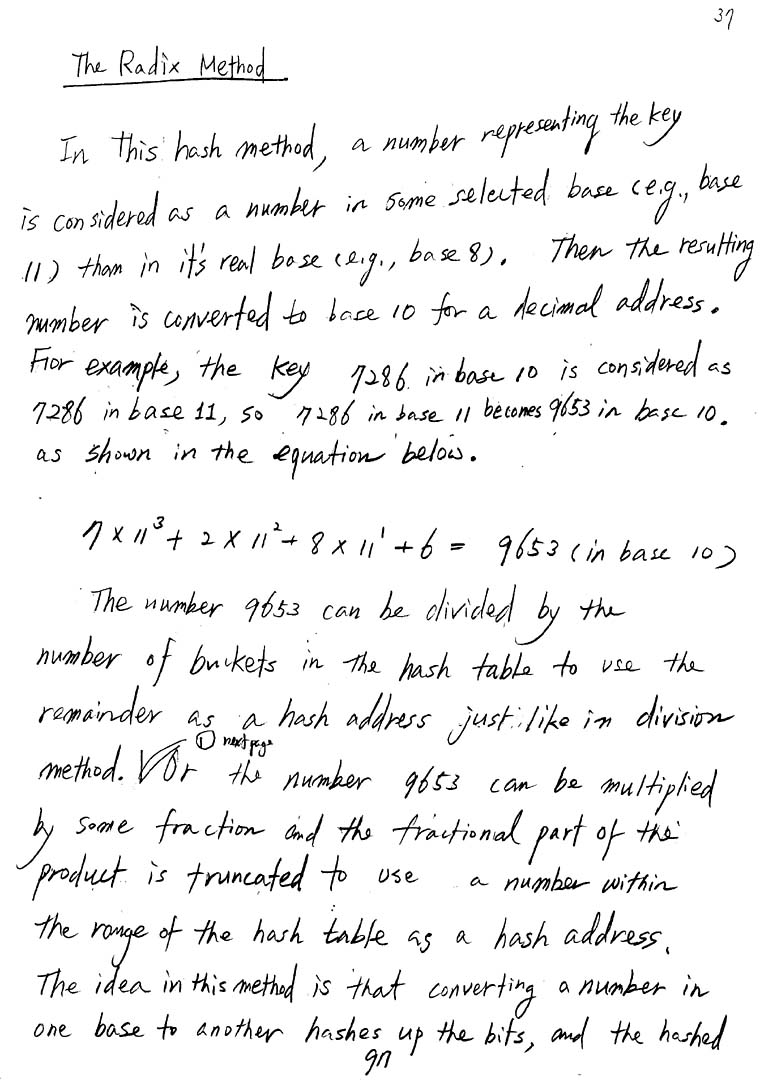 37
The Radix Method
In this hash method, a number representing the key
is considered as a number in some selected base (e.g., base
11) than in it's real base (e.g., base 8). Then the resulting
number is converted to base 10 for a decimal address.
For example, the key 7286 in base 10 is considered as
7286 in base 11, so 7286 in base 11 becomes 9653 in base 10.
as shown in the equation below.
7 × 11³ + 2 × 11² + 8 × 11¹ + 6 = 9653 (in base 10)
The number 9653 can be divided by the
number of buckets in the hash table to use the
remainder as a hash address just like in division
① next page
method. Or the number 9653 can be multiplied
by some fraction and the fractional part of the
product is truncated to use a number within
the range of the hash table as a hash address.
The idea in this method is that converting a number in
one base to another hashes up the bits, and the hashed
97